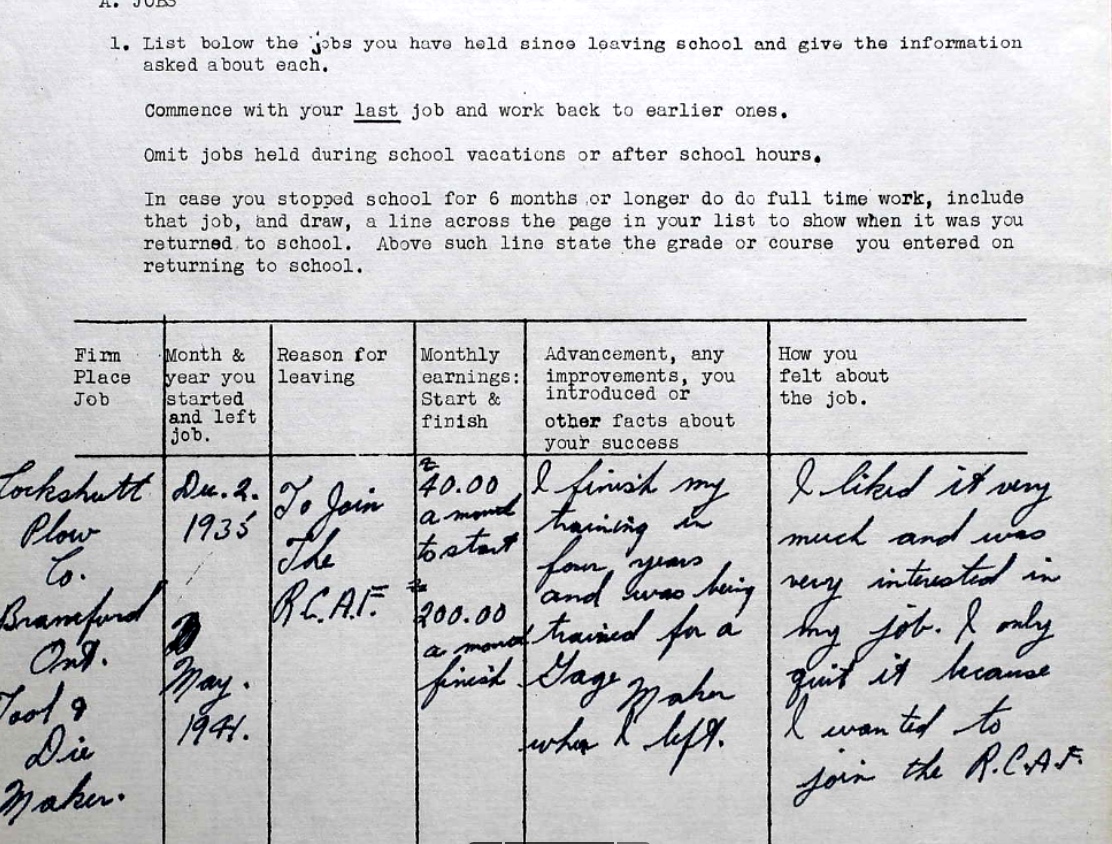 A. JOBS
1. List below the jobs you have held since leaving school and give the information
asked about each.
Commence with your last job and work back to earlier ones.
Omit jobs held during school vacations or after school hours.
In case you stopped school for 6 months or longer do do full time work, include
that job, and draw, a line across the page in your list to show when it was you
returned to school. Above such line state the grade or course you entered on
returning to school.
Firm
Place
Job
Month &
year you
started
and left
job.
Reason for
leaving
Monthly
earnings:
Start &
finish
Advancement, any
improvements, you
introduced or
other facts about
your success
How you
felt about
the job.
Cockshutt
Plow
Co.
Brantford
Ont.
Tool &
Die
Maker.
Dec. 2.
1935
May.
1941.
To Join
The
R.C.A.F.
40.00
a
to start
200.00
a
finish
I finish my
training in
four years
and was being
trained for a
Gage Maker
when I left.
I liked it very
much and was
very interested in
my job. I only
quit it because
I wanted to
join the R.C.A.F.